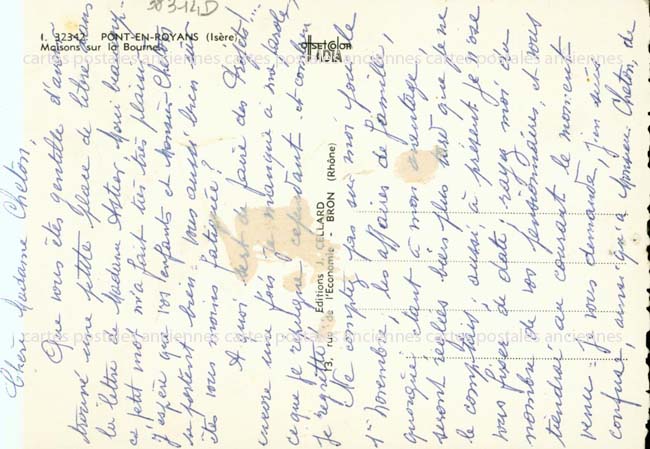 38314D
I. 32342 PONT-EN-ROYANS (Isère)
Maisons sur la Bourne
OFFSETCOLOR
Editions J. CELLARD
13, rue de l'Economie - BRON (Rhône)
cartes postales anciennes cartes postales anciennes cartes postales anciennes
cartes postales anciennes cartes postales anciennes cartes postales anciennes
Chère Madame Cheton,
Que vous êtes gentille d'avoir
trouvé une petite place de libre sur
la lettre Madame Astier, Merci beaucoup.
ce petit mot m'a fait très très plaisir,
j'espère que vos enfants et Monsieur Cheton
se portent bien ; Vous aussi bien sûr
êtes vous moins fatiguée ?
A quoi sert de faire des projets !
encore une fois je manque à ma parole,
ce que je répugne cependant et combien
je regrette
Ne comptez pas sur moi pour le
1er novembre les affaires de famille,
quoique étant à mon avantage
seront réglées bien plus tard que je ne
le comptais ; aussi à présent je n'ose
vous fixer de date ; rayez moi du
nombre de vos pensionnaires, et vous
tiendrai au courant le moment
venu - Je vous demande, j'en suis
confuse, ainsi qu'à Monsieur Cheton, de